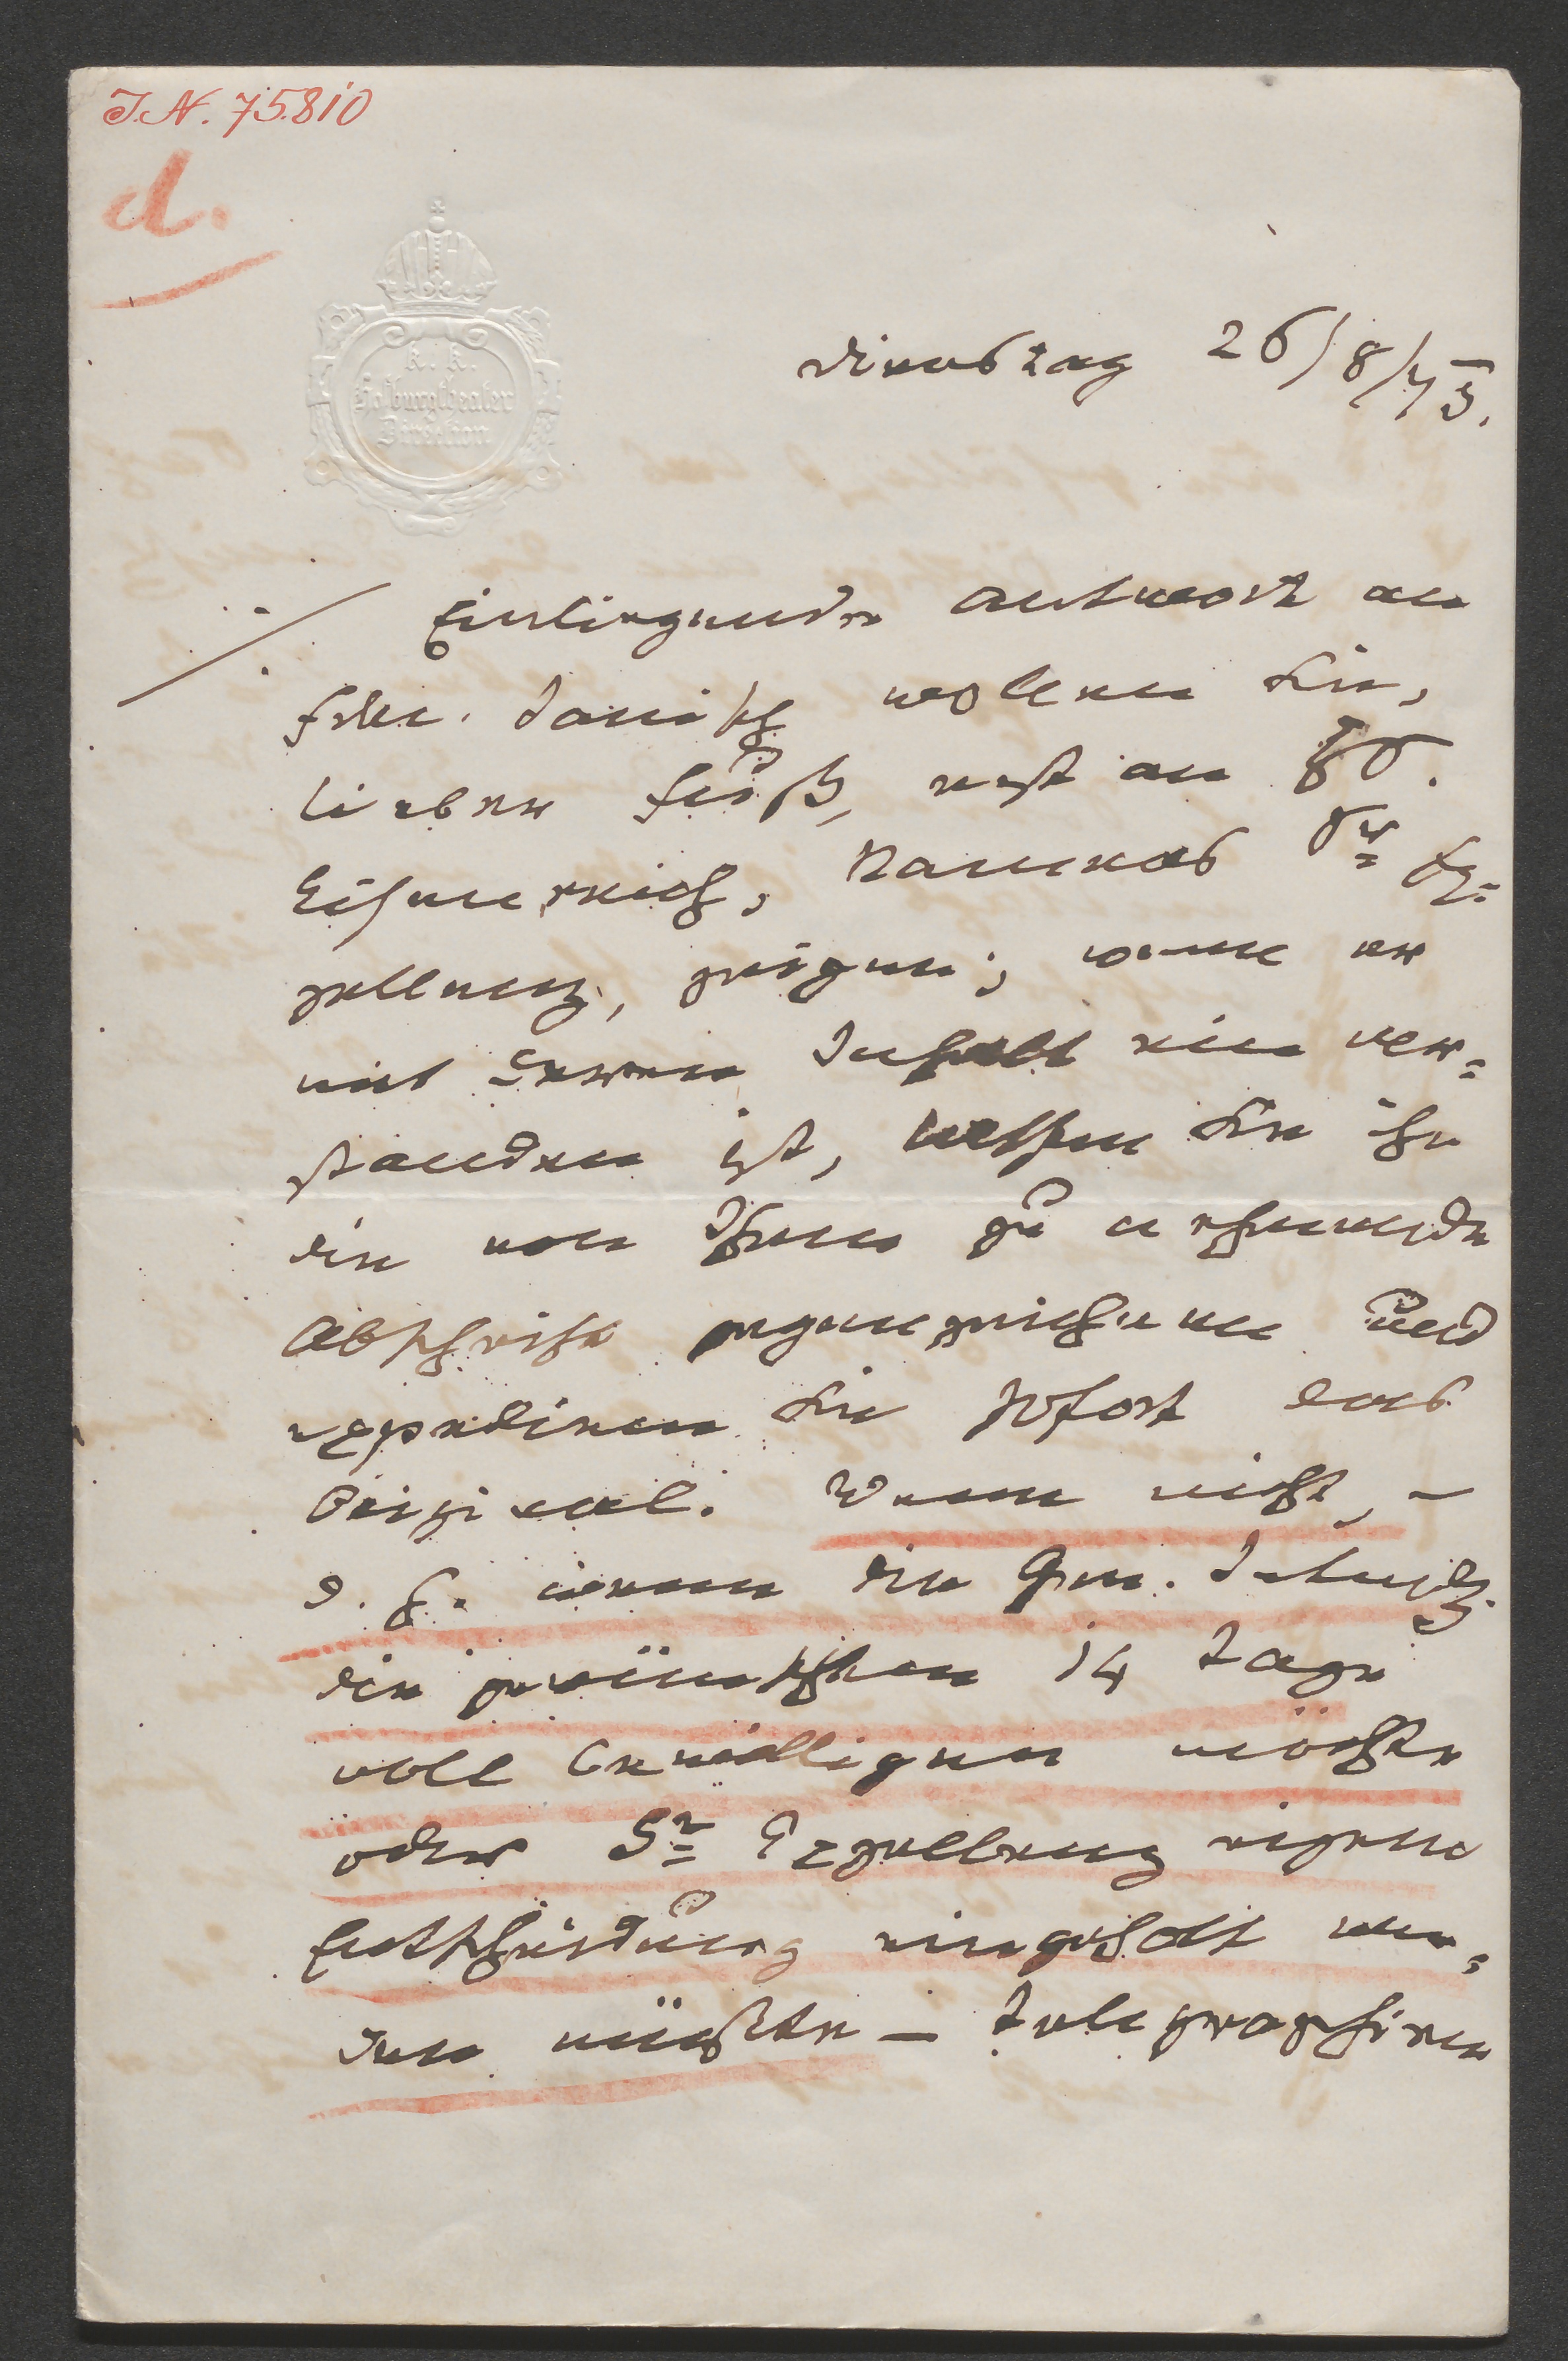 I.N. 75.810
d.
k. k.
Hofburgtheater
Direktion
Dienstag 26/8/73.
./. Einliegende Antwort an
Frln. Janisch wollen Sie,
lieber Fuß, erst an HR.
Eisenreich, namens Sr Ex=
zellenz, zeigen; wenn er
mit deren Inhalt ein ver=
standen ist, lassen Sie ihn
die von Ihnen zu nehmende
Abschrift gegenzeichnen und
expediren Sie sofort das
Original. Wenn nicht, –
d. h. wenn die Gen. Intendz.
die gewünschten 14 Tage
voll bewilligen möchte
oder Sr Exzellenz eigene
Entscheidung eingeholt wer=
den müßte – telegraphiren